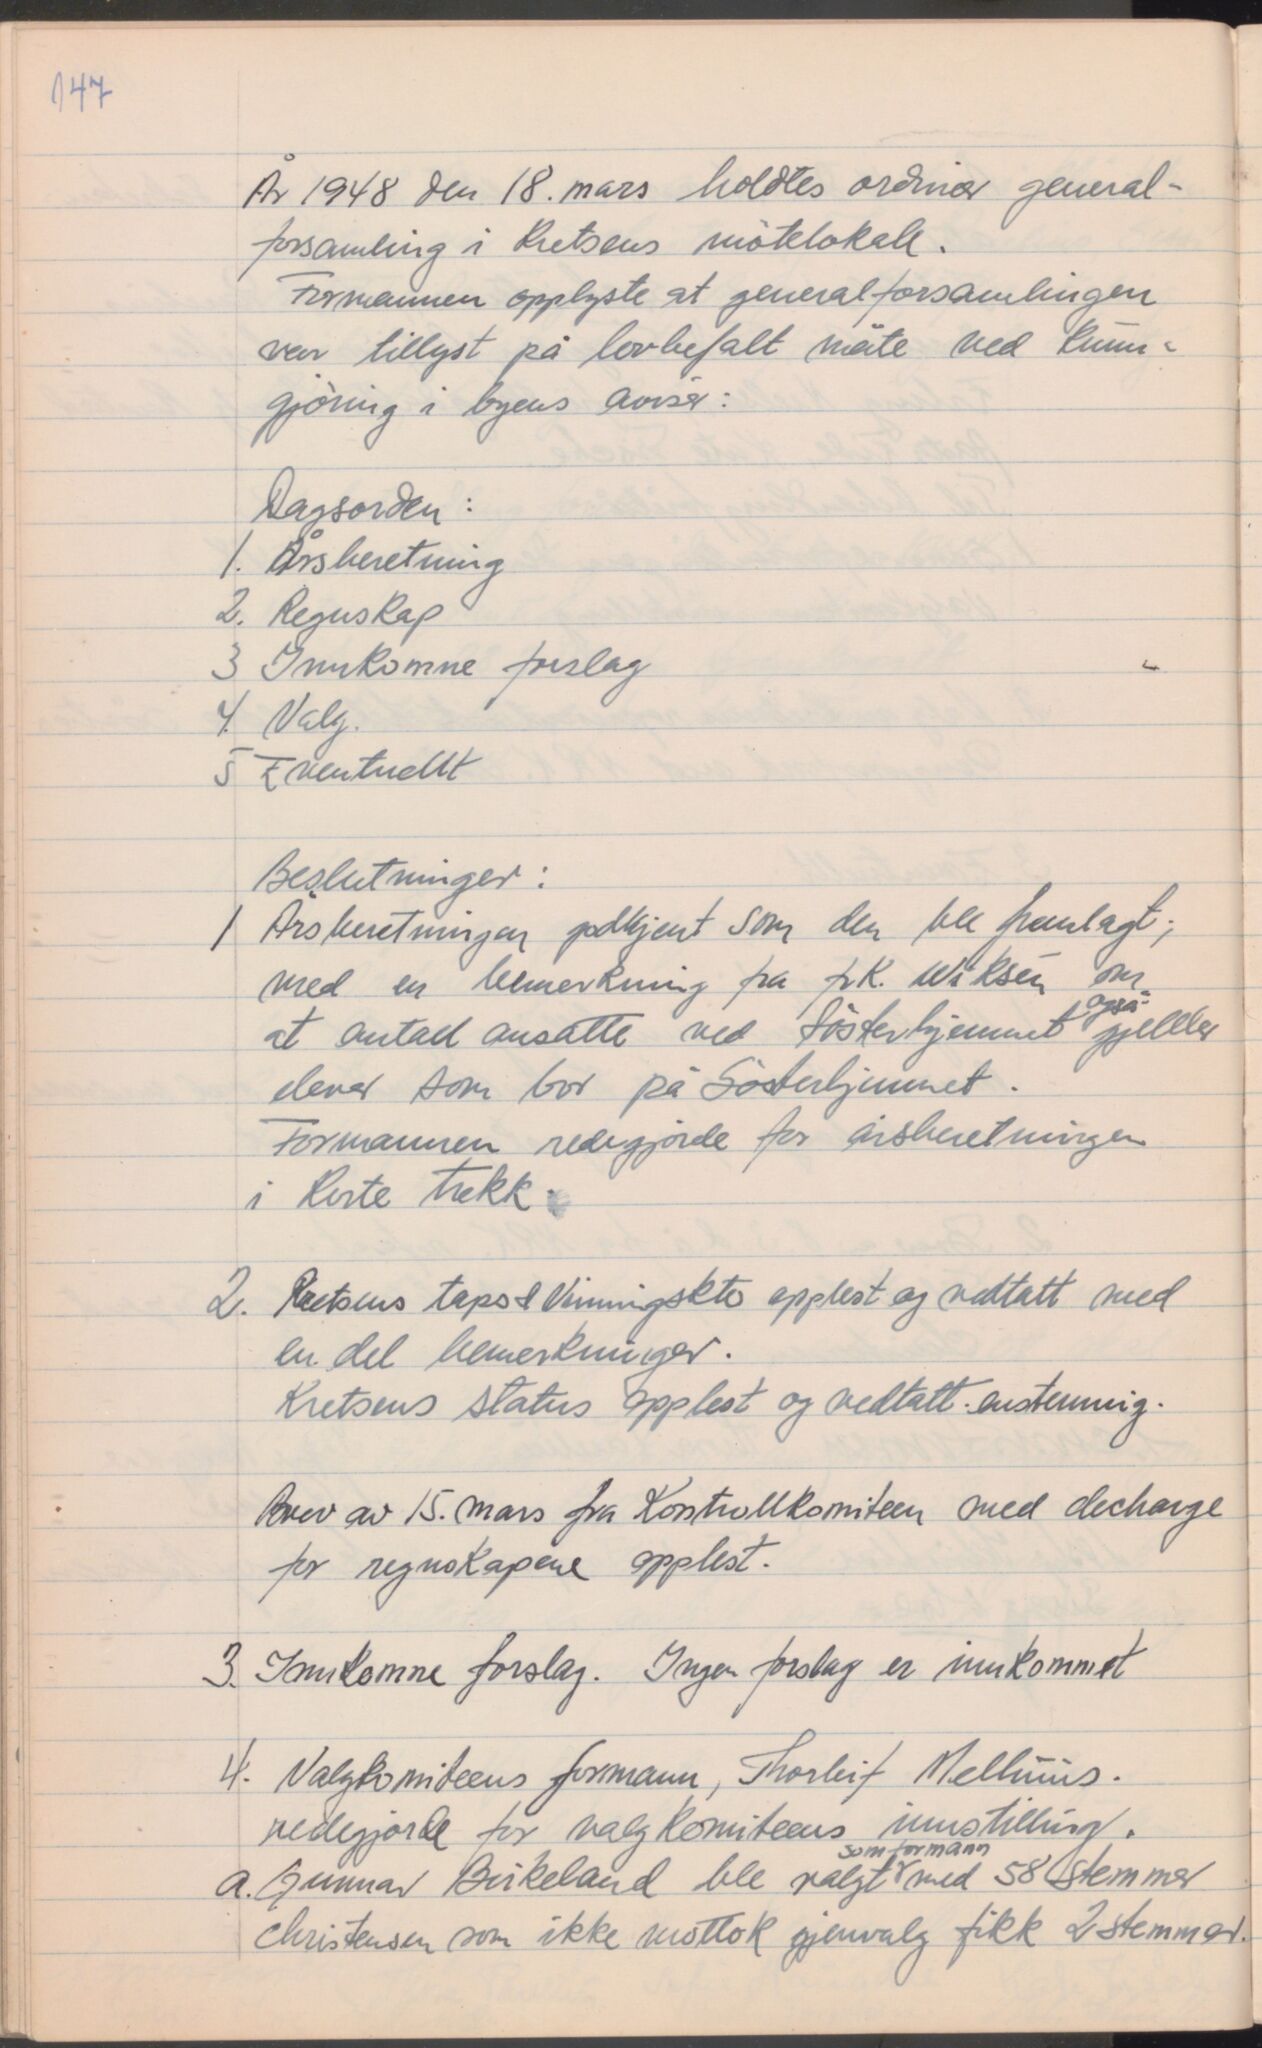 147
År 1948 den 18. mars holdtes ordinær general-
forsamling i Kretsens mötelokale.
Formannen opplyste at generalforsamlingen
var tillyst på lovbefalt måte ved kunn-
gjöring i byens aviser:
Dagsorden:
1. Årsberetning
2. Regnskap
3 Innkomne forslag
4. Valg.
5 Eventuellt
Beslutninger:
1 Årsberetningen godkjent som den ble fremlagt;
med en bemerkning fra frk. Wiksén om
at antall ansatte ved Sösterhjemmet også gjelder
elever som bor på Sösterhjemmet.
Formannen redegjorde for årsberetningen
i korte trekk.
2. Kretsens taps & Vinningskto opplest og vedtatt med
en del bemerkninger.
Kretsens status opplest og vedtatt enstemmig.
Brev av 15. mars fra Kontrollkomiteen med decharge
for regnskapene opplest.
3. Innkomne forslag. Ingen forslag er innkommet
4. Valgkomiteens formann, Thorleif Mellhüus.
redegjorde for valgkomiteens innstilling.
a. Gunnar Birkeland ble valgt som formann med 58 stemmer
Christensen som ikke mottok gjenvalg fikk 2 stemmer.